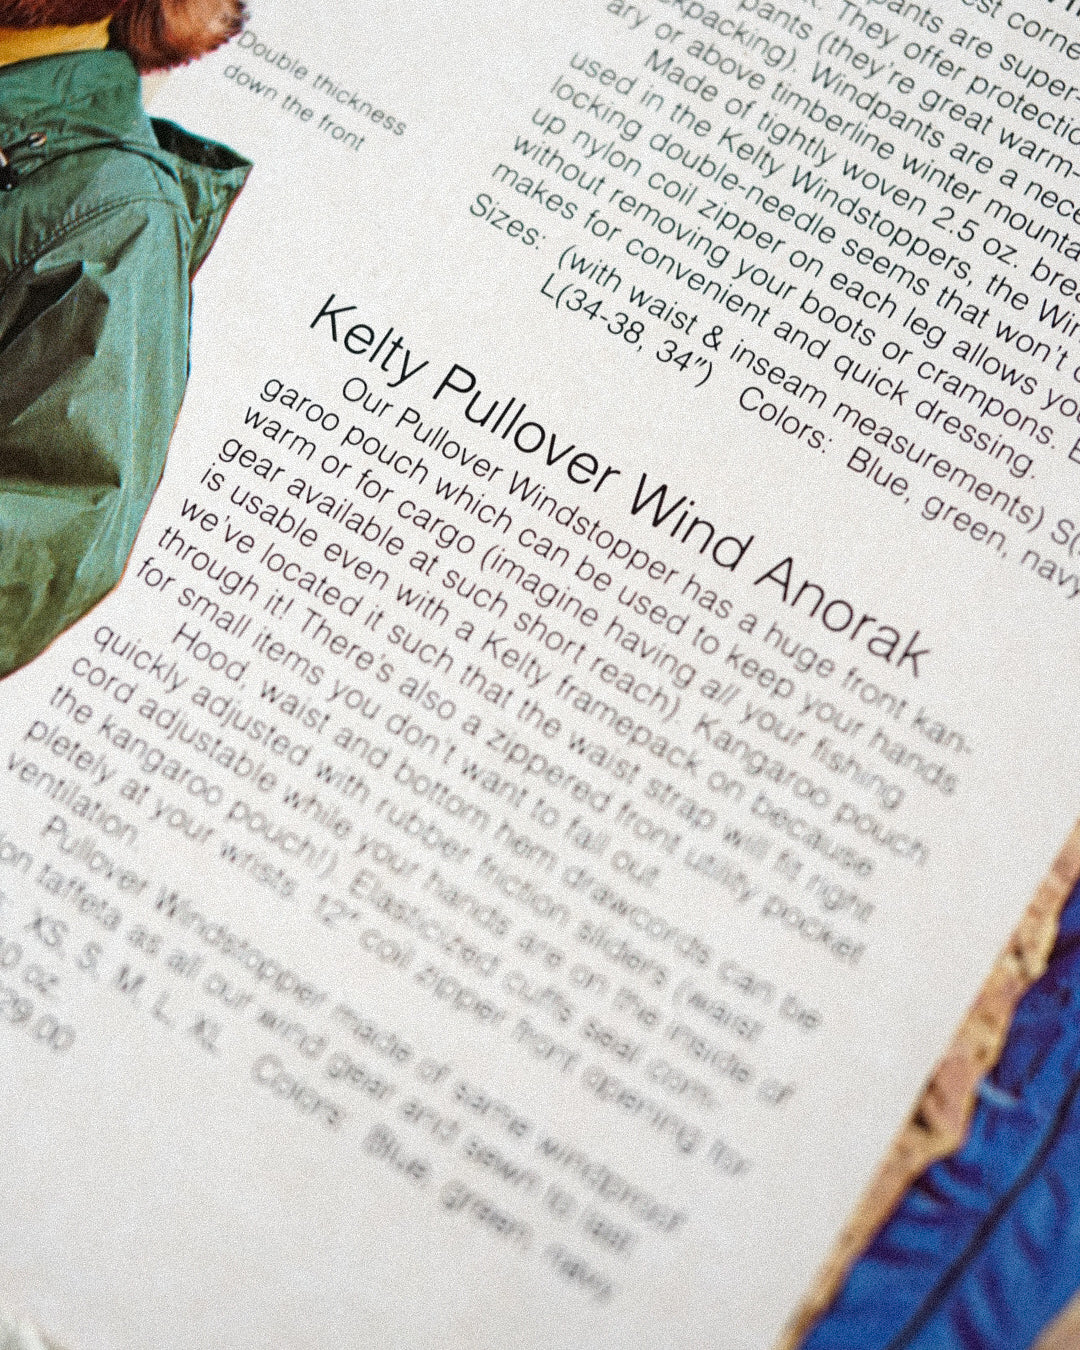 Double thickness
down the front
est corne
pants are super-
k. They offer protectio
pants (they're great warm-
kpacking). Windpants are a nece
ary or above timberline winter mounta
Made of tightly woven 2.5 oz. brea
used in the Kelty Windstoppers, the Win
locking double-needle seems that won't
up nylon coil zipper on each leg allows you
without removing your boots or crampons. E
makes for convenient and quick dressing.
Sizes: (with waist & inseam measurements) S(
L(34-38, 34") Colors: Blue, green, navy
Kelty Pullover Wind Anorak
Our Pullover Windstopper has a huge front kan-
garoo pouch which can be used to keep your hands
warm or for cargo (imagine having all your fishing
gear available at such short reach). Kangaroo pouch
is usable even with a Kelty framepack on because
we've located it such that the waist strap will fit right
through it! There's also a zippered front utility pocket
for small items you don't want to fall out.
Hood, waist and bottom hem drawcords can be
quickly adjusted with rubber friction sliders (waist
cord adjustable while your hands are on the inside of
the kangaroo pouch!). Elasticized cuffs seal com-
pletely at your wrists. 12" coil zipper front opening for
ventilation.
Pullover Windstopper made of same windproof
lon taffeta as all our wind gear and sewn to last.
XS, S, M, L, XL Colors: Blue, green, navy
0 oz.
29.00